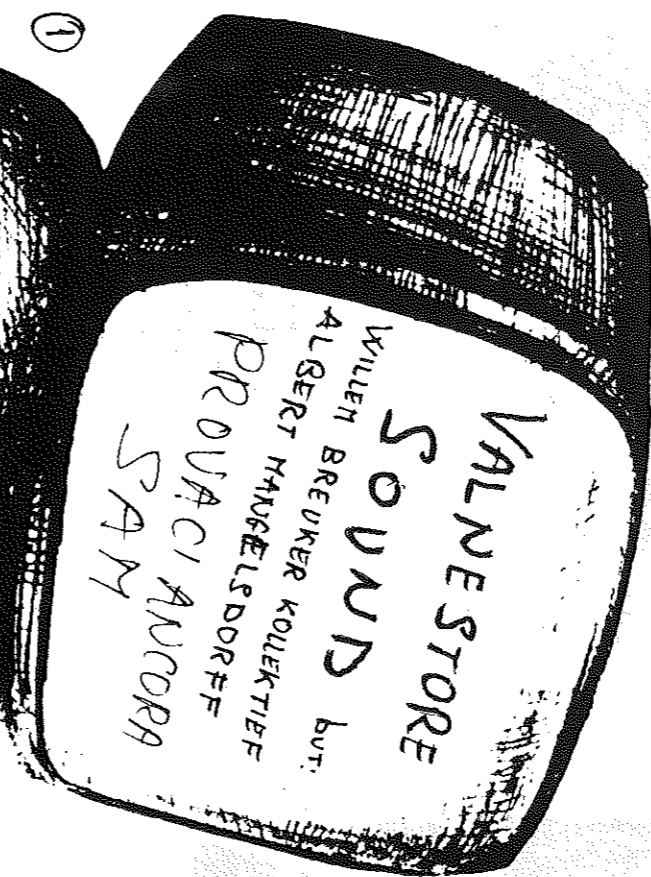 1
VALNESTORE
SOUND but:
WILLEM BREUKER KOLLEKTIEF
ALBERT MANGELSDORFF
PROVACI ANCORA
SAM